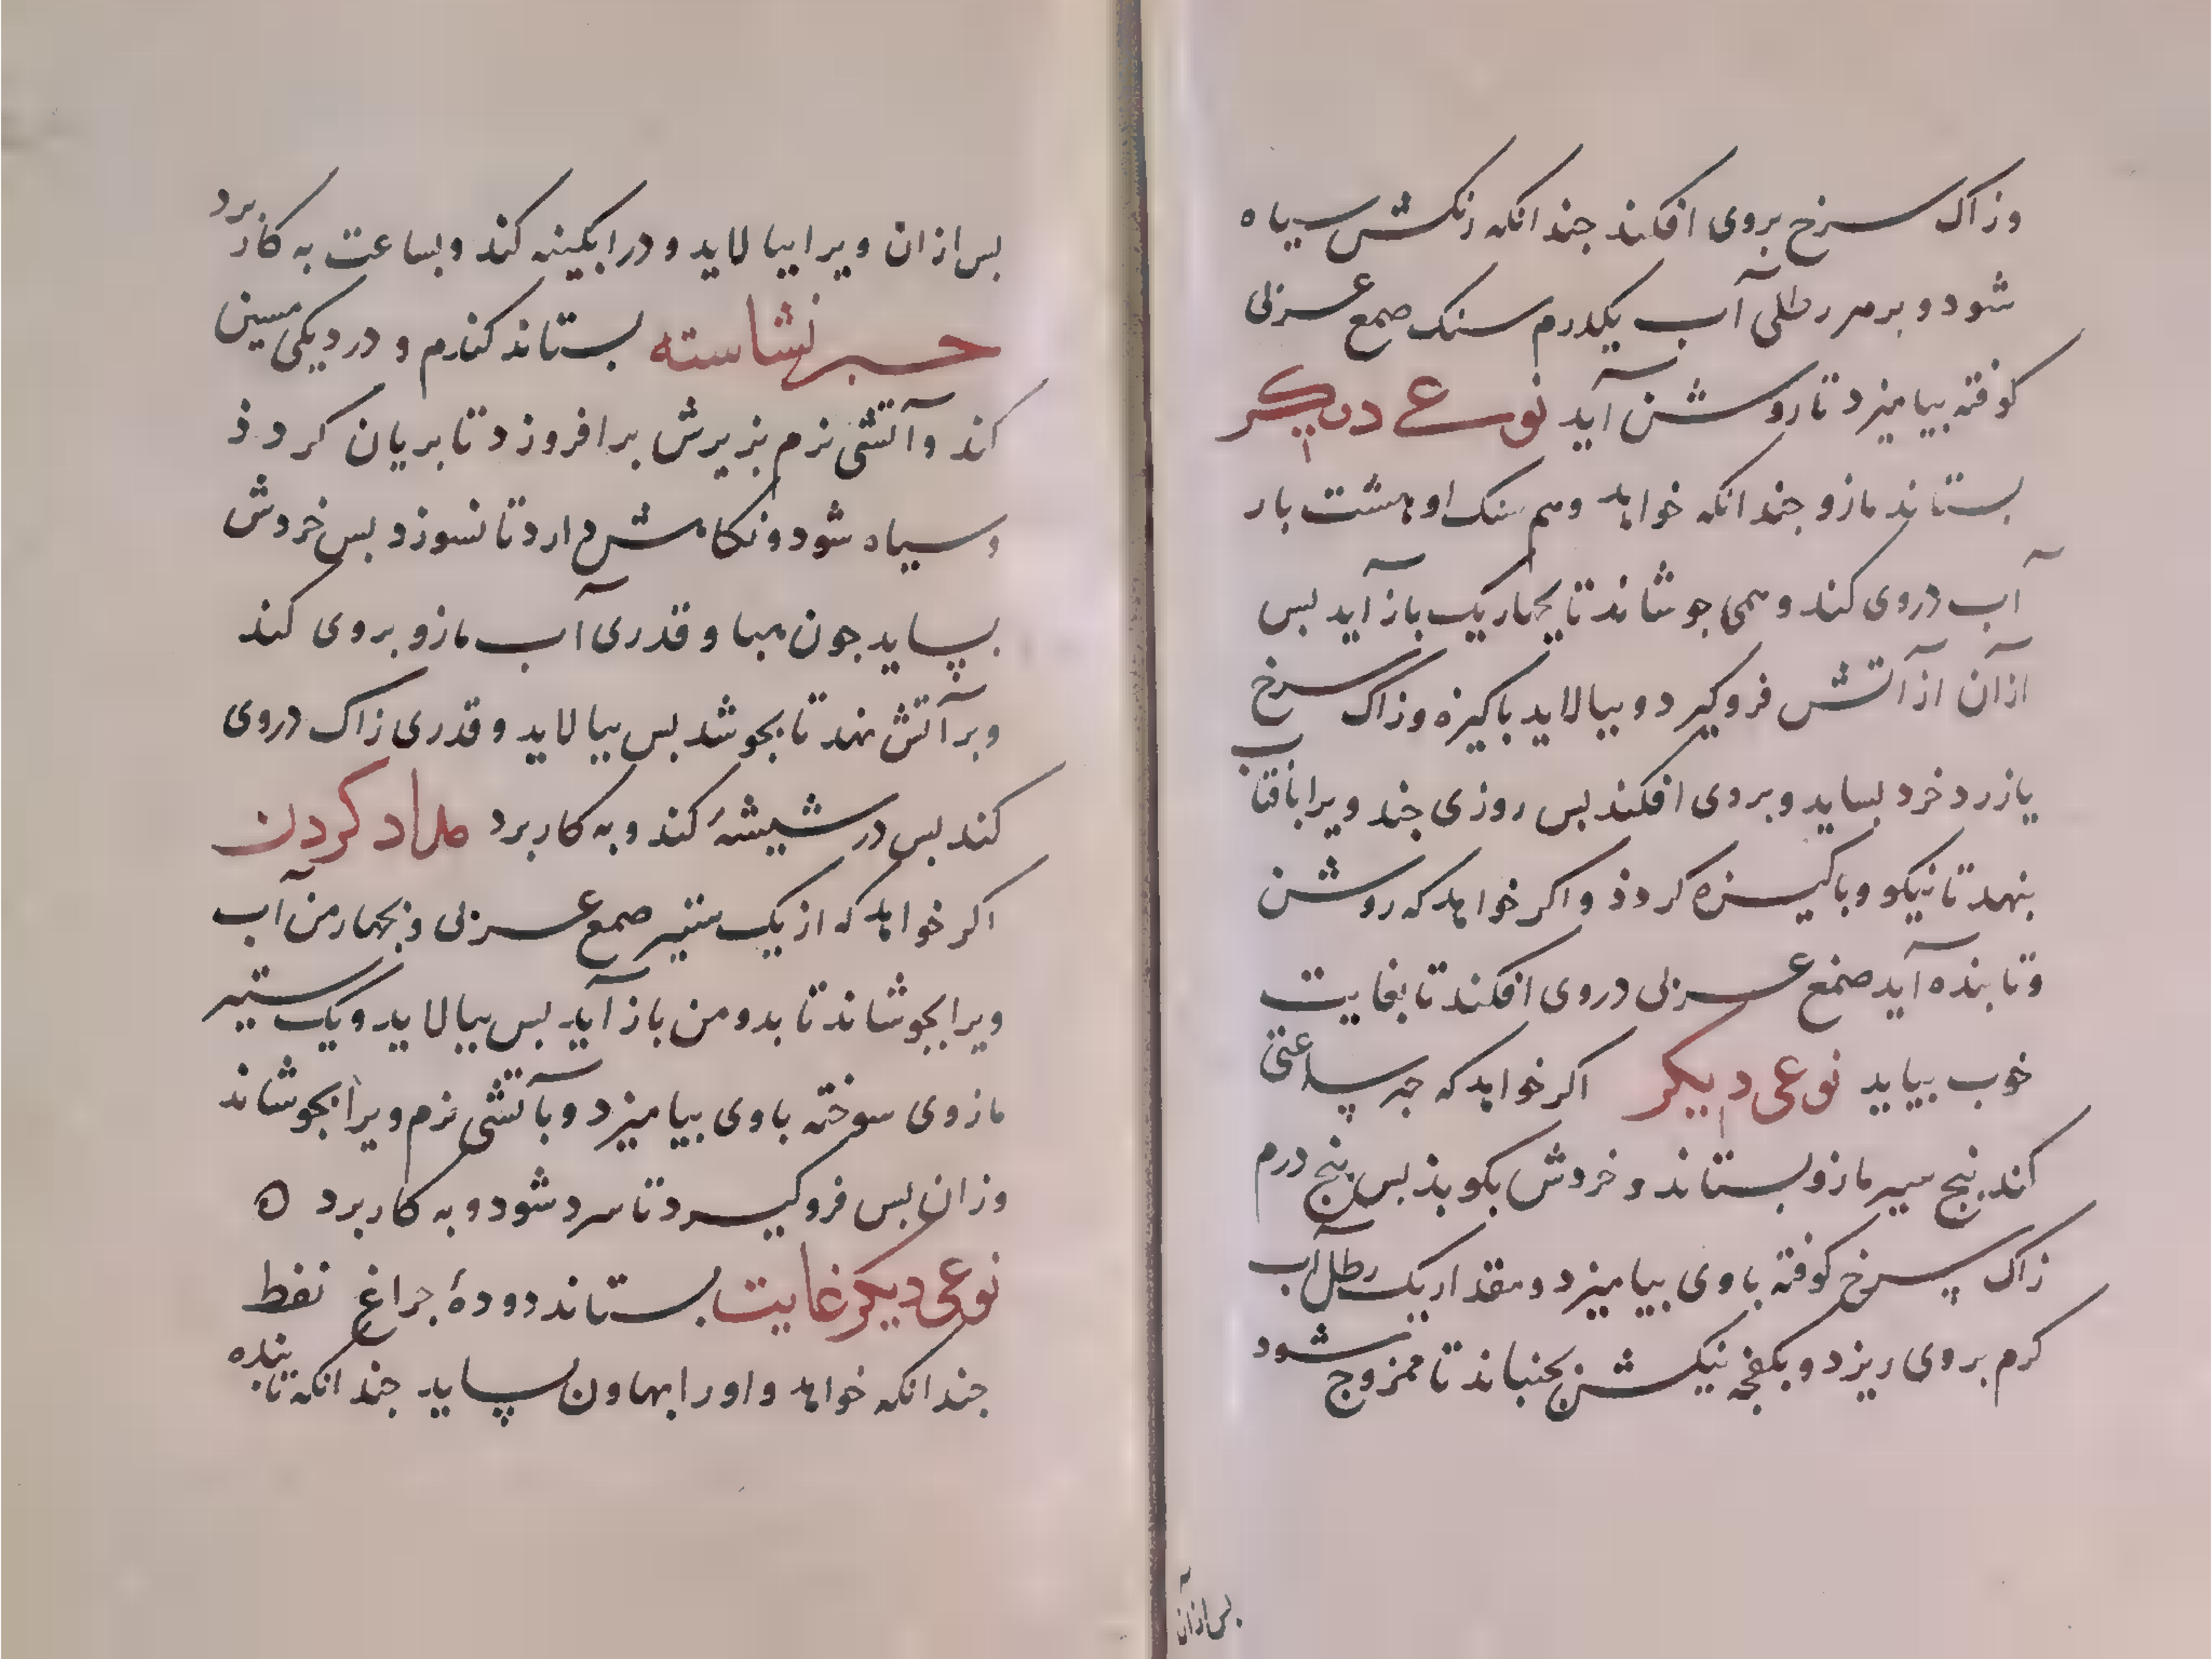 وزاک سرخ بروی افکند جندانکه رنکش سیاه
شود و برهر رطلی آب یکدرم سنک صمع عربی
کوفته بیامیزد تا روشن آید نوعی دیکر
بستاند مازو جندانکه خواهد و هم سنک او هشت بار
آب دروی کند و همی جوشاند تا بچهاریک باز آید بس
ازآن ازآتش فروکیرد و بیالاید باکیزه وزاک سرخ
یا زرد خرد بساید و بروی افکند بس روزی جند ویرا بافتاب
بنهد تا نیکو و باکیزه کردذ و اکر خواهد که روشن
وتابنده آید صمغ عربی دروی افکند تا بغایت
خوب بیاید نوعی دیکر اکر خواهد که حبر ساعتی
کند بنج سیر مازو بستاند و خردش بکوبد بس بنج درم
زاک سرخ کوفته باوی بیامیزد و مقدار یک رطل آب
کرم بروی ریزد و بکفچه نیکش بجنباند تا ممزوج شود
بس ازآن
بس ازان ویرا بیالاید و درابکینه کند و بساعت به کاربرد
حبر نشاسته بستاند کندم و دردیکی مسین
کند وآتشی نرم بزیرش برافروزد تا بریان کردذ
وسیاه شود ونکاهش دارد تا نسوزد بس خردش
بساید جون هبا و قدری آب مازو بروی کند
وبرآتش نهد تا بجوشد بس بیالاید و قدری زاک دروی
کند بس در شیشهٔ کند و به کاربرد مداد کردن
اکر خواهد که از یک ستیر صمع عربی و بچهارمن آب
ویرا بجوشاند تا بدو من باز آید بس بیالاید و یک ستیر
مازوی سوخته باوی بیامیزد و بآتشی نرم ویرا بجوشاند
وزان بس فروکیرد تا سرد شود و به کاربرد ه
نوعی دیکر غایت بستاند دودهٔ جراغ نفط
جندانکه خواهد و اورا بهاون بساید جندانکه تابنده